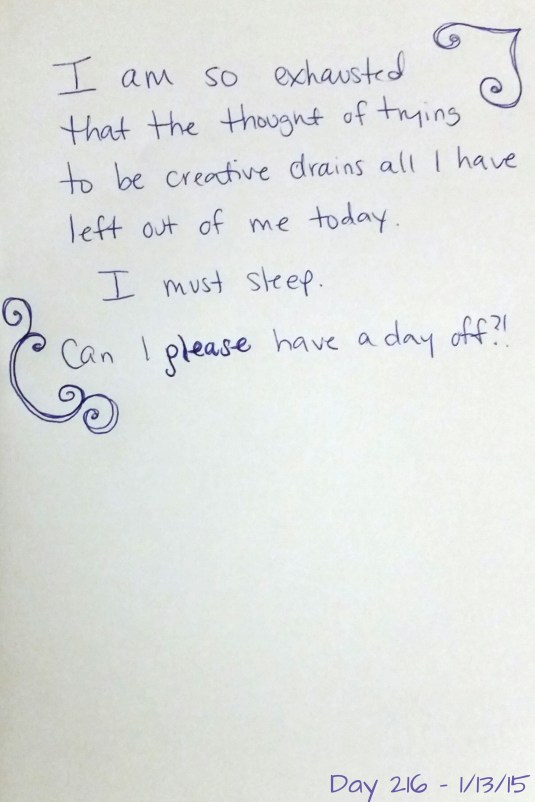 I am so exhausted
that the thought of trying
to be creative drains all I have
left out of me today.
I must sleep.
Can I please have a day off?!
Day 216 - 1/13/15